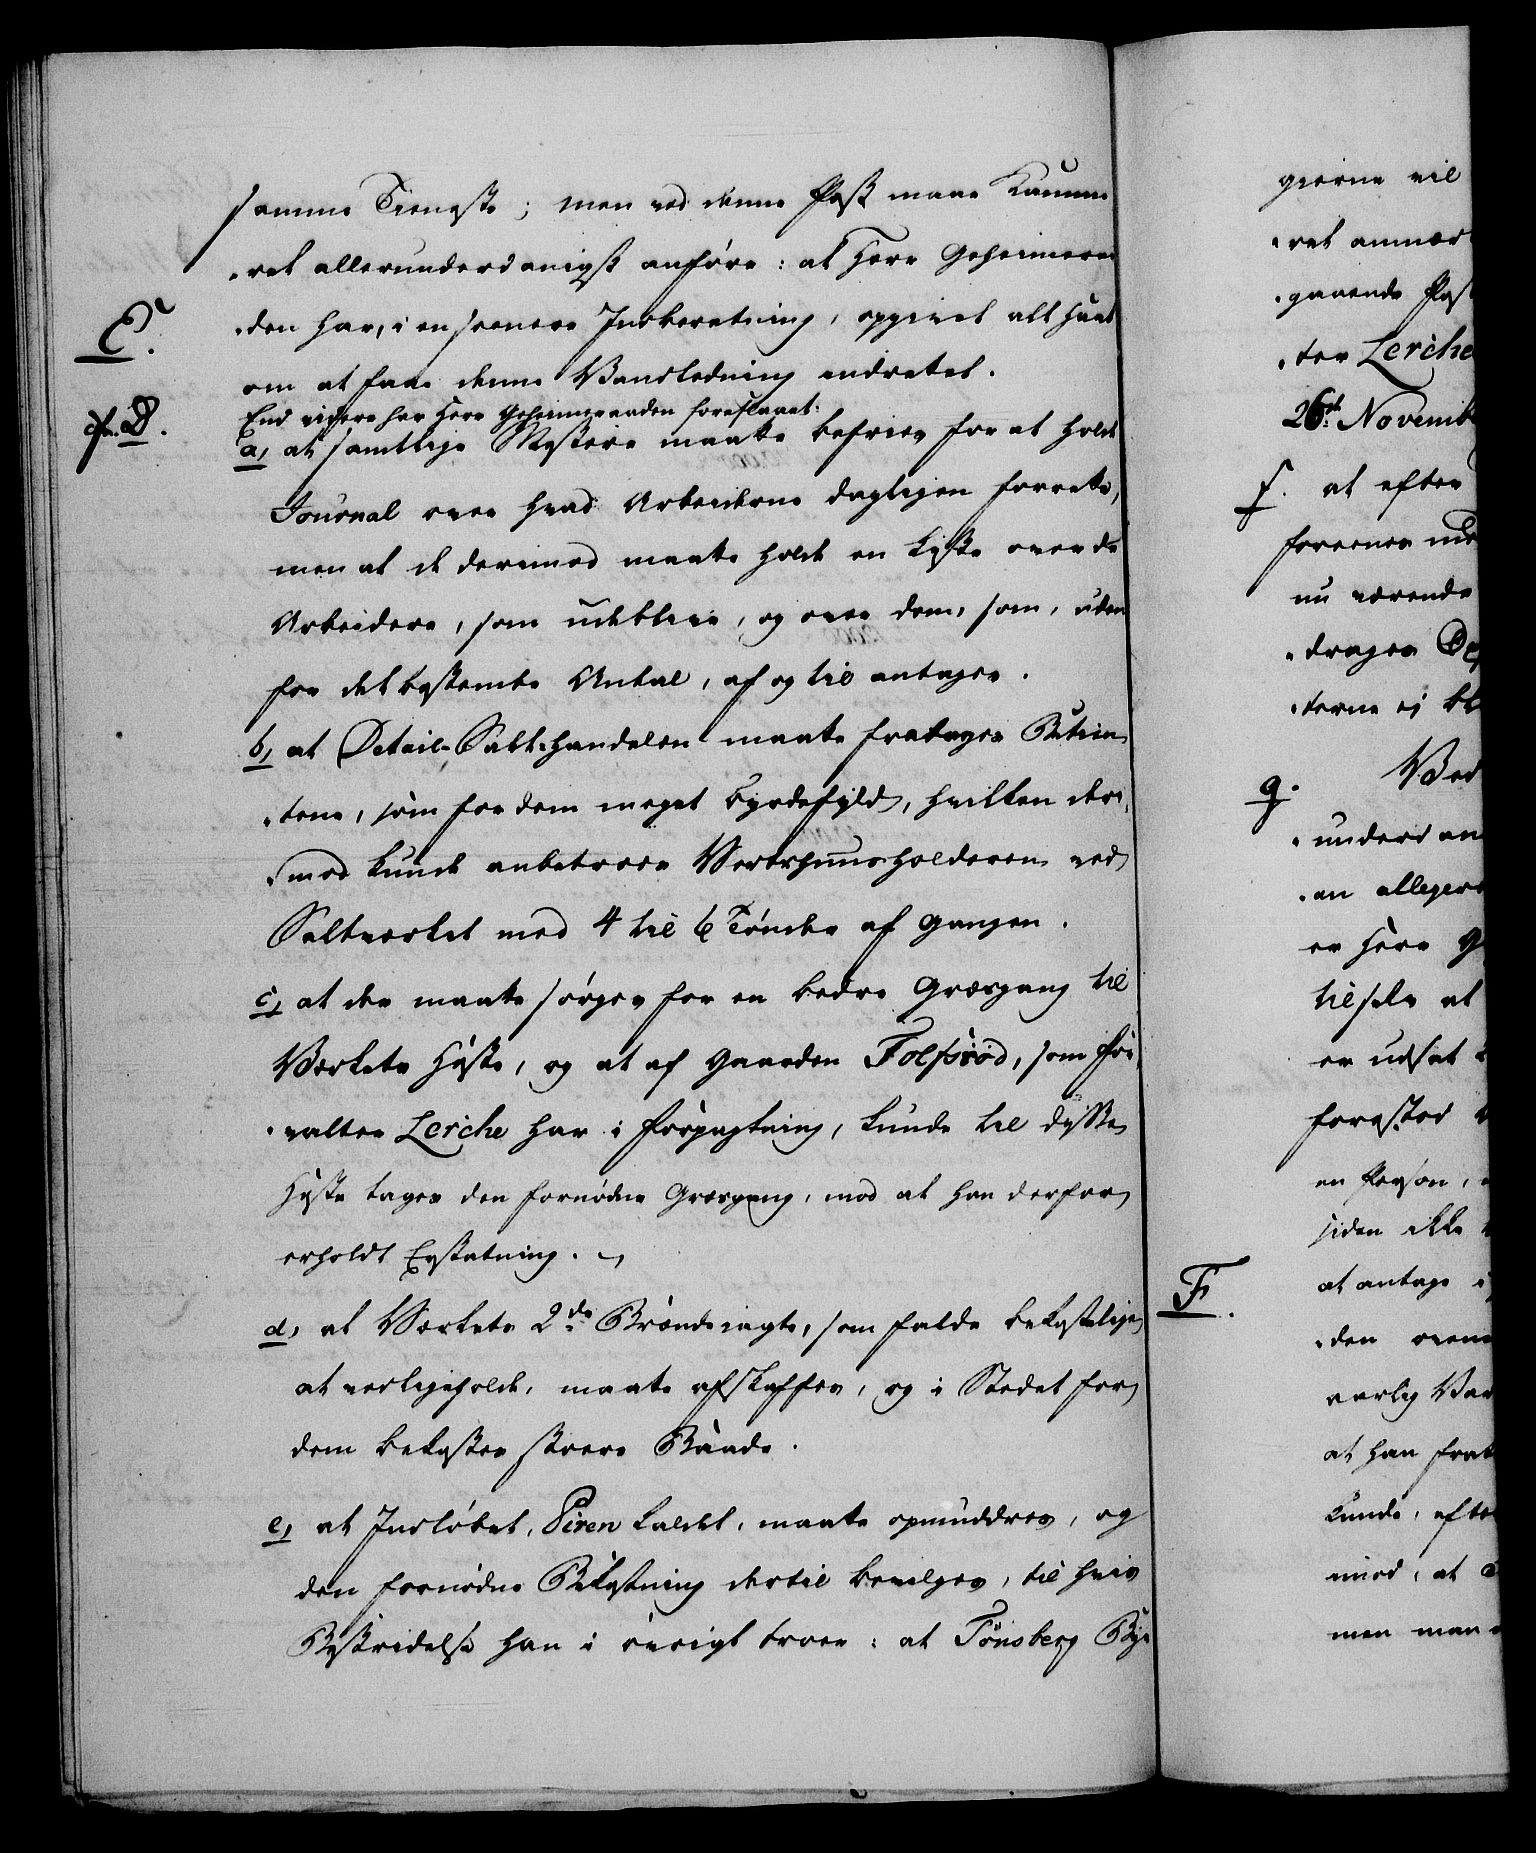 samme Tieneste; men ved denne Post maae Kamme
-ret allerunderdanigst anføre: at Herr Geheimeraa
C.
-den har, i en seenere Indberetning, opgivet alt Haab
om at faae denne Vandledning indrettet.
cfr. D.
End videre har Herr Geheimeraaden foreslaaet:
a, at samtlige Mestere maatte befries for at holde
Journal over hvad Arbeiderne dagligen forrette,
men at de derimod maatte holde en Liste over de
Arbeidere, som udeblive, og over dem, som, uden
for det bestemte Antal, af og til antages.
b, at Detail-Salt-Handelen maatte fratages Betien
-tene, som for dem meget byrdefyld, hvilken der
-imod kunde anbetroes Vertshuusholderen ved
Saltværket med 4 til 6 Tønder af Gangen.
c, at der maatte sørges for en bedre Græsgang til
Værkets Heste, og at af Gaarden Tolfsrød, som For
-valter Lerche har i Forpagtning, kunde til disse
Heste tages den fornødne Græsgang, mod at han derfor
erholdt Erstatning.
d, at Værkets 2de Brændejagte, som falde bekostelige
at vedligeholde, maatte afskaffes, og i Stedet for
dem bekostes større Baade.
e, at Indløbet, Piren kaldet, maatte opmuddres, og
den fornødne Bekostning dertil bevilges, til hvis
Bestridelse han i øvrigt troer: at Tønsberg Bye
gierne vil
-ret anmær
-gaaende Post
-ter Lerche
26de Novemb
f. at efter
foreenes med
nu værende
-drages
-terne ej bl
g. Ved
-underdan
-en allegere
er Herr G
tilfulde at
er udsat
forestod
en Person,
siden ikke
F.
at antage
-den
aarlig Var
at han frat
kunde, efter
imod, at
men man